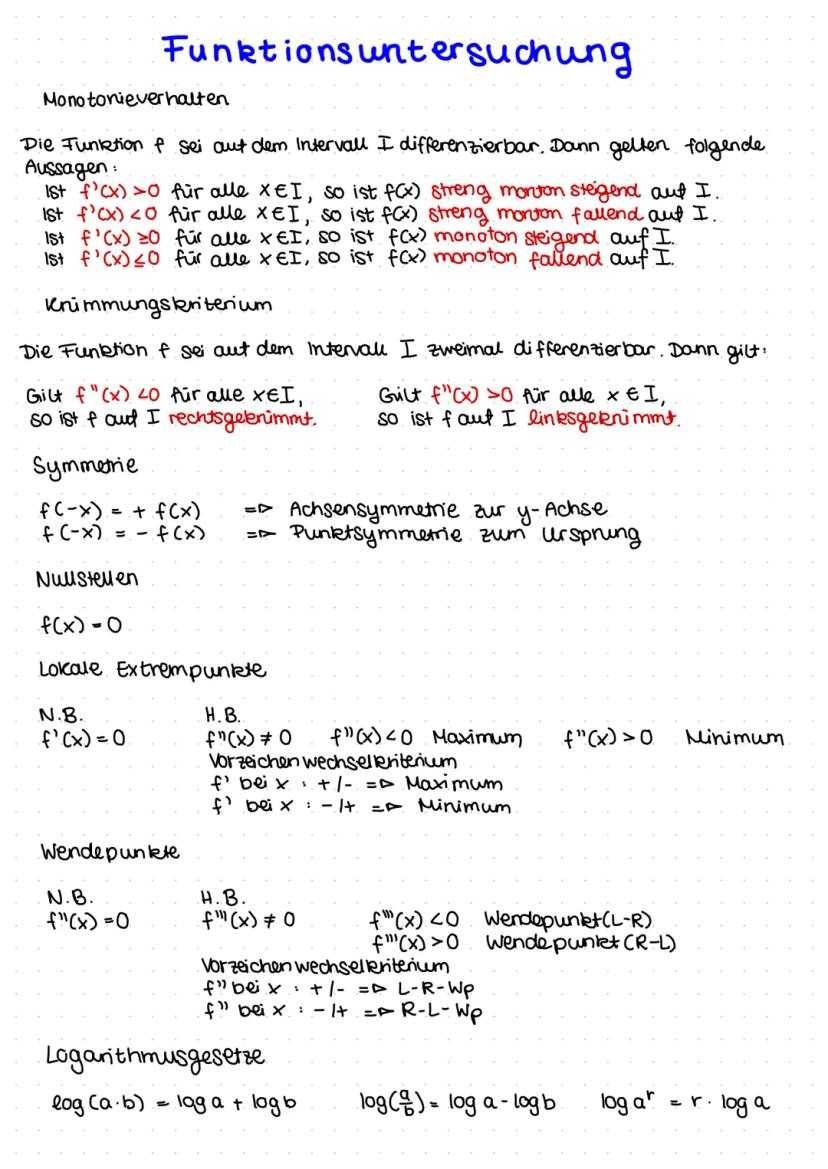 Funktionsuntersuchung
Monotonieverhalten
Die Funktion f sei auf dem Intervall I differenzierbar. Dann gelten folgende
Aussagen:
Ist f'(x) >0 für alle x∈I, so ist f(x) streng monton steigend auf I.
Ist f'(x) <0 für alle x∈I, so ist f(x) streng monton fallend auf I.
Ist f'(x) ≥0 für alle x∈I, so ist f(x) monoton steigend auf I.
Ist f'(x) ≤0 für alle x∈I, so ist f(x) monoton fallend auf I.
Krümmungskriterium
Die Funktion f sei auf dem Intervall I zweimal differenzierbar. Dann gilt:
Gilt f"(x) <0 für alle x∈I, Gilt f"(x) >0 für alle x∈I,
so ist f auf I rechtsgekrümmt. so ist f auf I linksgekrümmt.
Symmetrie
f(-x) = + f(x) => Achsensymmetrie zur y-Achse
f(-x) = - f(x) => Punktsymmetrie zum Ursprung
Nullstellen
f(x) = 0
Lokale Extrempunkte
N.B. H.B.
f'(x) = 0 f"(x) ≠ 0 f"(x) <0 Maximum f"(x) >0 Minimum
Vorzeichenwechselkriterium
f' bei x : +/- => Maximum
f' bei x : -/+ => Minimum
Wendepunkte
N.B. H.B.
f"(x) =0 f'''(x) ≠ 0 f'''(x) <0 Wendepunkt(L-R)
f'''(x) >0 Wendepunkt (R-L)
Vorzeichenwechselkriterium
f" bei x : +/- => L-R-Wp
f" bei x : -/+ => R-L-Wp
Logarithmusgesetze
log(a·b) = log a + log b log(a/b) = log a - log b log aʳ = r · log a